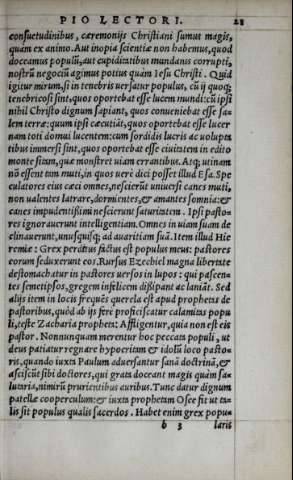 PIO LECTORI. 28
consuetudinibus, caremonijs Christiani sumus magis,
quàm ex animo. Aut inopia scientiæ non habemus, quod
doceamus populũ, aut cupiditatibus mundanis corrupti,
nostrũ negociũ agimus potius quàm Iesu Christi. Quid
igitur mirum, si in tenebris uersatur populus, cũ ij quoq;
tenebricosi sint, quos oportebat esse lucem mundi: cũ ipsi
nihil Christo dignum sapiant, quos conueniebat esse sa⸗
lem terræ: quum ipsi cæcutiāt, quos oportebat esse lucer
nam toti domui lucentem: cum sordidis lucris ac uolupta
tibus immersi sint, quos oportebat esse ciuitatem in edito
monte sitam, quæ monstret uiam errantibus. Atq; utinam
nõ essent tam muti, in quos uerè dici posset illud Esa. Spe
culatores eius cæci omnes, nescierũt uniuersi canes muti,
non ualentes latrare, dormientes, & amantes somnia: &
canes impudentissimi nescierunt saturitatem. Ipsi pasto⸗
res ignorauerunt intelligentiam. Omnes in uiam suam de
clinauerunt, unusquisq; ad auaritiam suā. Item illud Hie
remiæ: Grex perditus factus est populus meus: pastores
eorum seduxerunt eos. Rursus Ezechiel magna libertate
destomachatur in pastores uersos in lupos: qui pascen⸗
tes semetipsos, gregem infelicem dissipant ac laniāt. Sed
alijs item in locis frequēs querela est apud prophetas de
pastoribus, quòd ab ijs ferè proficiscatur calamitas popu
li, teste Zacharia propheta: Affligentur, quia non est eis
pastor. Nonnunquam merentur hoc peccata populi, ut
deus patiatur regnare hypocritam & idolũ loco pasto⸗
ris, quando iuxta Paulum aduersantur sanā doctrinā, &
asciscũt sibi doctores, qui grata doceant magis quàm sa⸗
lutaria, nimirũ prurientibus auribus. Tunc datur dignum
patellæ cooperculum: & iuxta prophetam Osee fit ut ta⸗
lis sit populus qualis sacerdos. Habet enim grex popu⸗
b 3 laris